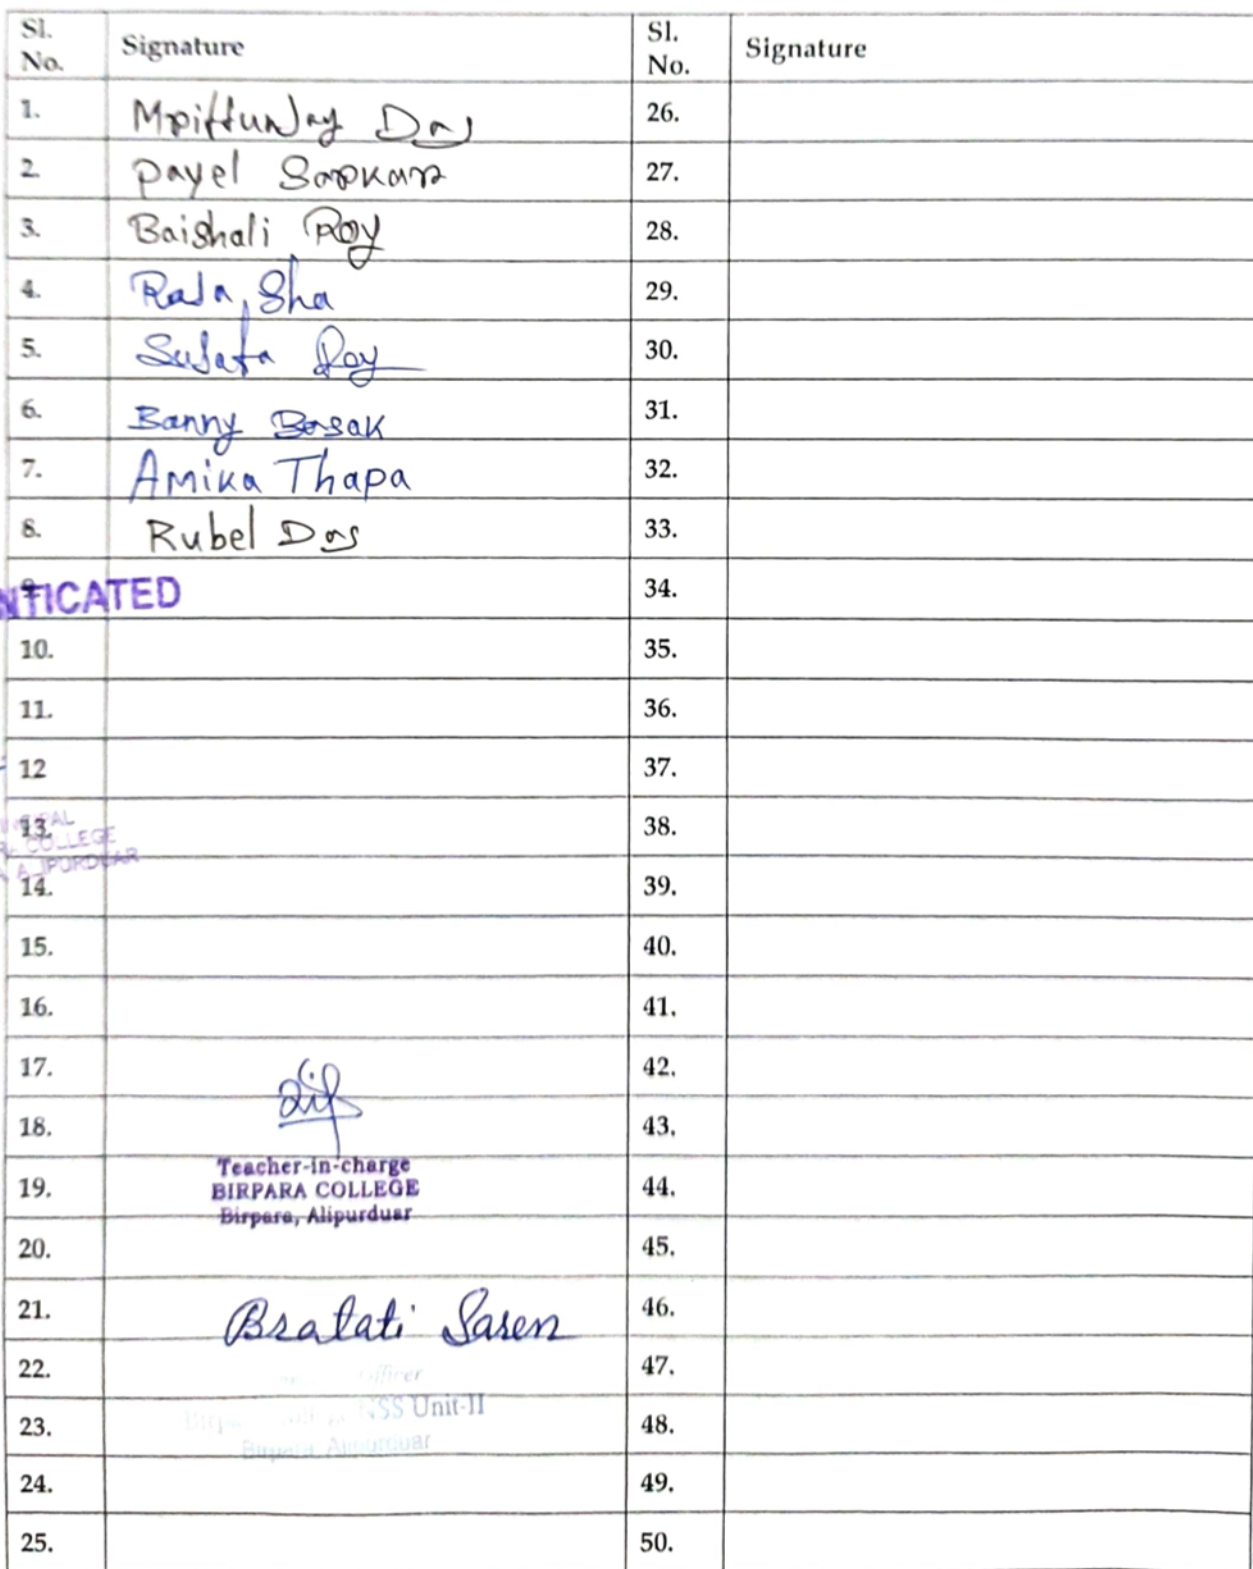 Sl. No. Signature Sl. No. Signature
1. Mrittunjay Das 26.
2. Payel Sarkar 27.
3. Baishali Roy 28.
4. Raja Sha 29.
5. Sujata Roy 30.
6. Banny Basak 31.
7. Amika Thapa 32.
8. Rubel Das 33.
9. NTICATED 34.
10. 35.
11. 36.
12 37.
13. PAL 38.
COLLEGE
ALIPURDUAR
14. 39.
15. 40.
16. 41.
17. 42.
18. 43.
Teacher-in-charge
19. BIRPARA COLLEGE 44.
Birpara, Alipurduar
20. 45.
21. Bratati Saren 46.
22. Officer 47.
NSS Unit-II
23. 48.
Birpara, Alipurduar
24. 49.
25. 50.